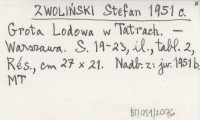 ZWOLIŃSKI Stefan 1951 c.
Grota Lodowa w Tatrach. —
Warszawa. S. 19-23, il., tabl. 2,
Rés., cm 27 x 21. Nadb. z: jw. 1951 b,
MT